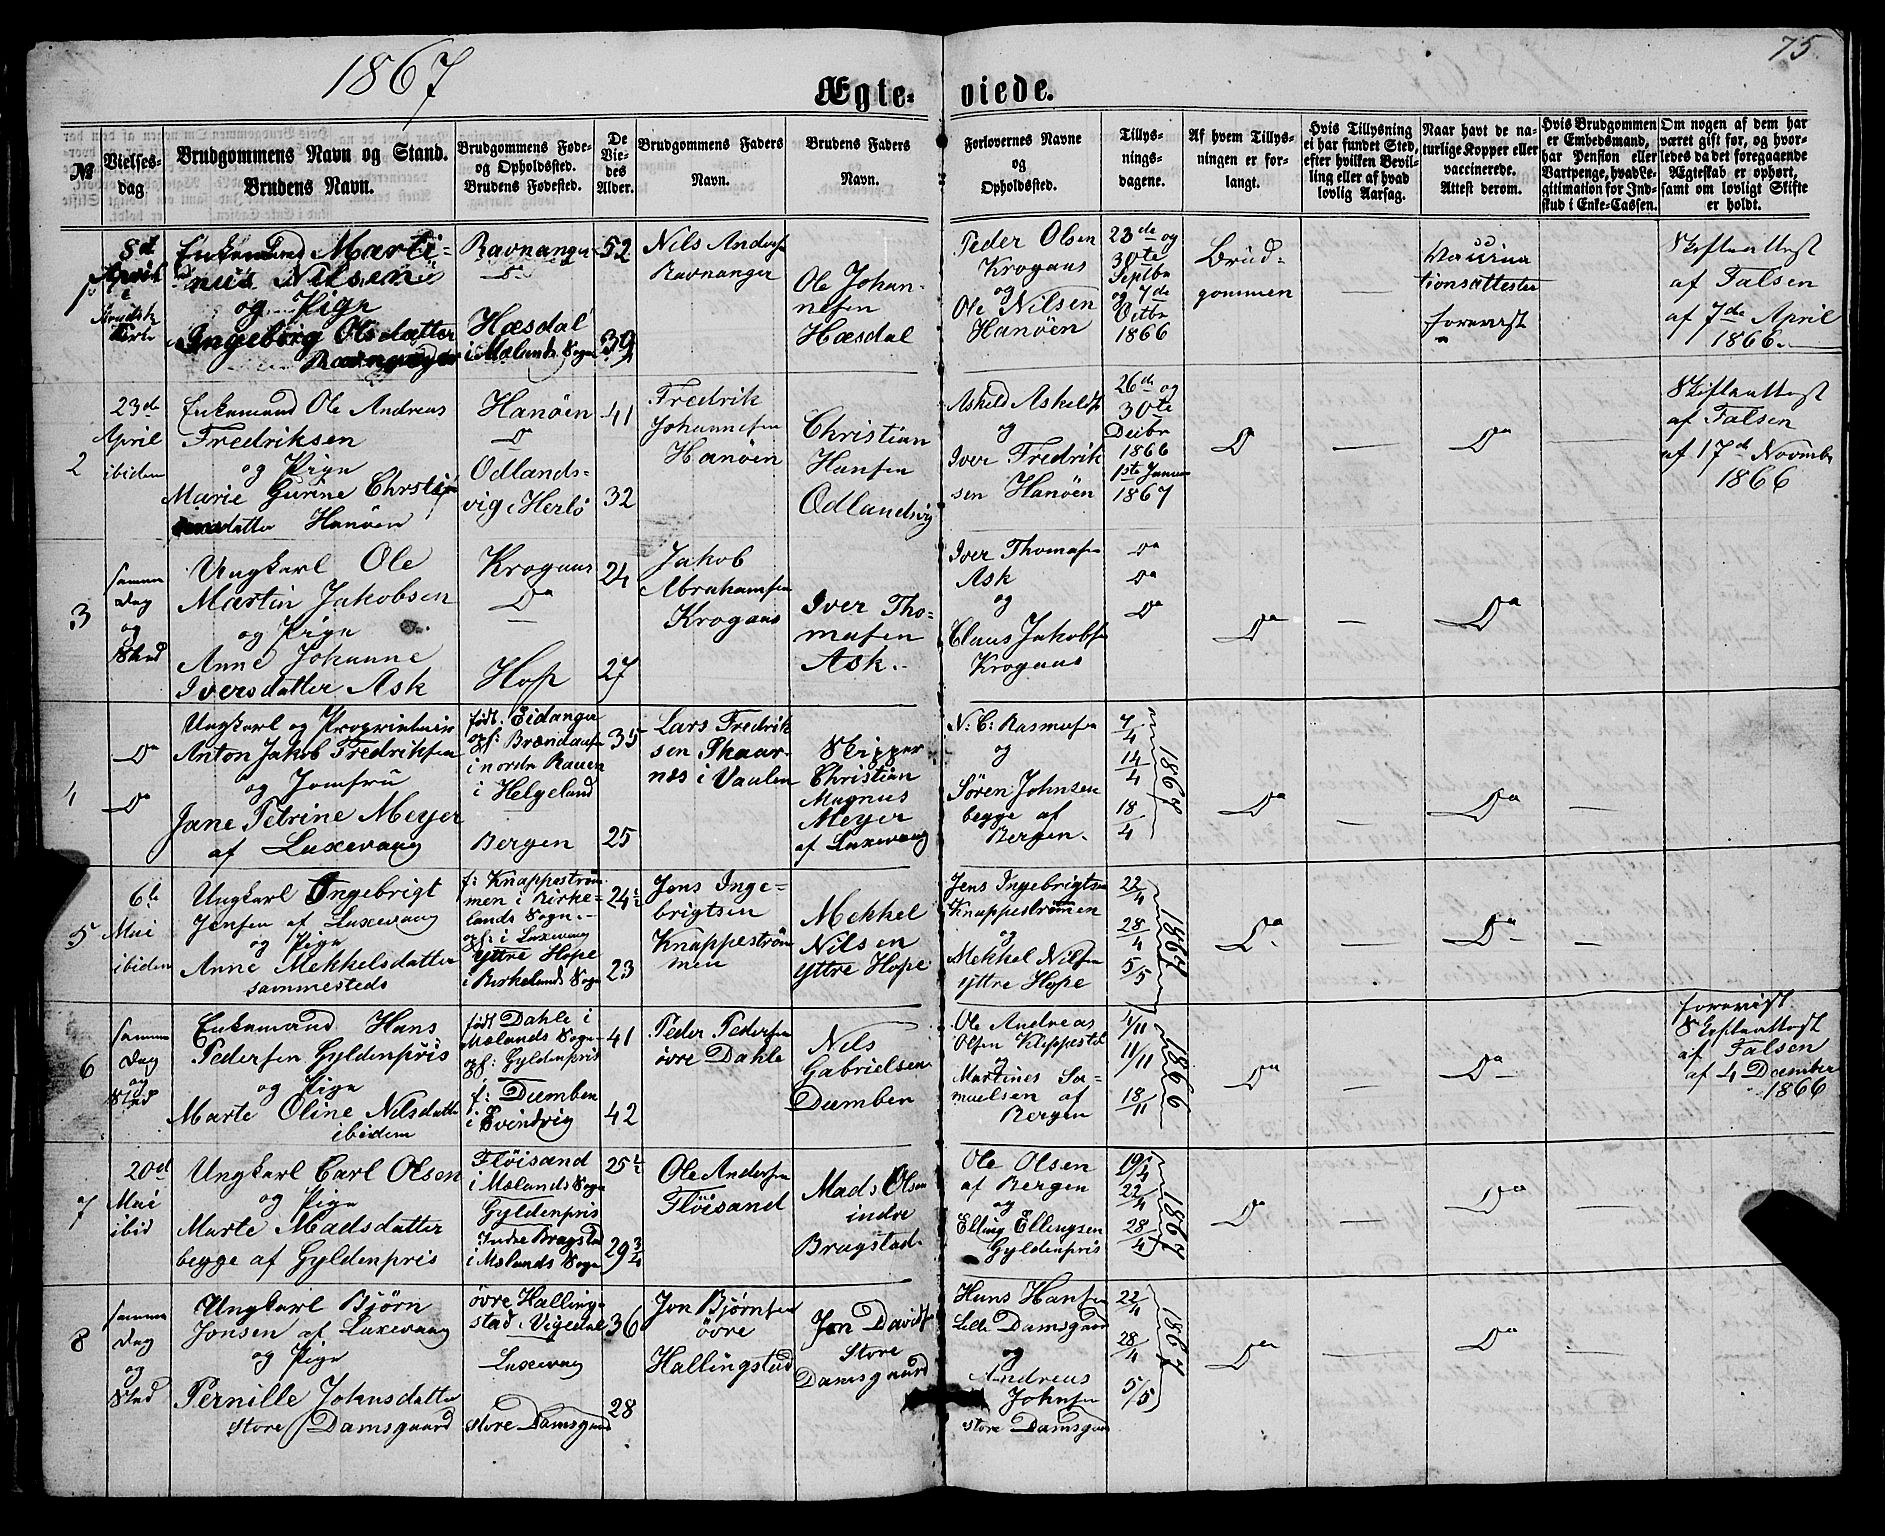 1867
75
Ægte-viede.
№
Vielses-
dag
Brudgommens Navn og Stand.
Brudens Navn.
Brudgommens Føde-
og Opholdssted.
Brudens Fødested.
De
Vie-
des
Alder.
Brudgommens Faders
Navn.
Brudens Faders
Navn.
Forlovernes Navne
og
Opholdssted.
Tillys-
nings-
dagene.
Af hvem Tillys-
ningen er for-
langt.
Hvis Tillysning
ei har fundet Sted,
efter hvilken Bevil-
ling eller af hvad
lovlig Aarsag.
Naar havt de na-
turlige Kopper eller
vaccinerede.
Attest derom.
Hvis Brudgommen
er Embedsmand,
har Pension eller
Vartpenge, hvad Le-
gitimation for Ind-
skud i Enke-Cassen.
Om nogen af dem har
været gift før, og hvor-
ledes da det foregaaende
Ægteskab er ophørt,
samt om lovligt Skifte
er holdt.
1
8d
April
i
Kirke
Enkemand Marti-
nus Nilsen
og Pige
Ingeborg Olsdatter
Ravnanger
Ravnanger
Do
Hæsdal
i Mælands Sogn
52
39
Nils Anders
Ravnanger
Ole Johan-
nesen
Hæsdal
Peder Olsen
Krogaas
og
Ole Nilsen
Hanøen
23de og
30te
Septbr
og 7de
Octbr
1866
Brud-
gommen
—
Vaccina
tionsattester
forevist
Skifteattest
af Falsen
af 7de April
1866.
2
23de
April
ibidem
Enkemand Ole Andreas
Fredriksen
og Pige
Marie Gurine Christi
datter Hanøen
Hanöen
Do
Odlands-
vig i Herlö
41
32
Fredrik
Johannesen
Hanöen
Christian
Hansen
Odlandsvig
Askild Askilds
og
Iver Fredrik
sen Hanöen
26de og
30te
Decbr
1866
1ste Januar
1867
D
—
Do
Skifteattest
af Falsen
af 17de Novembr
1866
3
samme
Dag
og
Sted
Ungkarl Ole
Martin Jakobsen
og Pige
Anne Johanne
Iversdatter Ask
Krogaas
Do
Hop
24
27
Jakob
Abrahamsen
Krogaas
Iver Tho-
masen
Ask.
Iver Thomasen
Ask
og
Claus Jakobsen
Krogaas
Do
Do
Do
Do
—
Do
4
Do
Do
Ungkarl og Proprietair
Anton Jakob Fredriksen
og Jomfru
Jane Petrine Meyer
af Laxevaag
født: Eidanger
opf: Brændaasen
i nordr Ranen
i Helgeland
Bergen
35
25
Lars Fredrik
sen Thaar-
næs i Vaalen
Skipper
Christian
Magnus
Meyer
af Laxevaag
N: C: Rasmusen
og
Sören Johnsen
begge af
Bergen.
7/4
14/4
18/4
1867
Do
—
Do
—
5
6te
Mai
ibidem
Ungkarl Ingebrigt
Jensen af Laxevaag
og Pige
Anne Mekkelsdatter
sammesteds
f: Knappeström
men i Birke-
lands Sogn.
opf: i Laxevaag
Yttre Hope
i Birkelands Sogn
24½
23
Jens Inge-
brigtsen
Knappeström
men
Mekkel
Nilsen
yttre Hope
Jens Ingebrigtsen
Knappeströmmen
og
Mekkel Nilsen
yttre Hope
22/4
28/4
5/5
1867
Do
—
Do
—
6
samme
Dag
og
Sted
Enkemand Hans
Pedersen Gyldenpris
og Pige
Marte Oline Nilsdatter
ibidem
født Dahle i
Mælands Sogn
opf: Gyldenpris
f: Dæmben
i Evindvig
41
42
Peder Pedersen
övre Dahle
Nils
Gabrielsen
Dæmben
Ole Andreas
Olsen Kleppestö
og
Martines Sa-
muelsen af
Bergen
4/11
11/11
18/11
1866
Do
—
Do
forevist
Skifteattest
af Falsen
af 4 December
1866
7
20d
Mai
ibid
Ungkarl Carl Olsen
og Pige
Marte Madsdatter
begge af Gyldenpris
Flöisand
i Mælands Sogn
Gyldenpris
Indre Bragstad
i Mælands Sogn
25½
29¾
Ole Andersen
Flöisand
Mads Olsen
indre
Bragstad
Ole Olsen
af Bergen
og
Elling Ellingsen
Gyldenpris
19/4
22/4
28/4
1867
Do
—
Do
—
8
samme
Dag
og
Sted
Ungkarl Bjørn
Jonsen af Laxevaag
og Pige
Pernille Johnsdatter
Store Damsgaard
övre Halling-
stad i Vigedal
Laxevaag
Store Damsgaard
36
28
Jon Bjørnsen
övre
Hallingstad
Jon Davids
Store
Damsgaard
Hans Hansen
Lille Damsgaard
og
Andreas
Johnsen
Store Damsgaard
22/4
28/4
5/5
1867
Do
—
Do
—